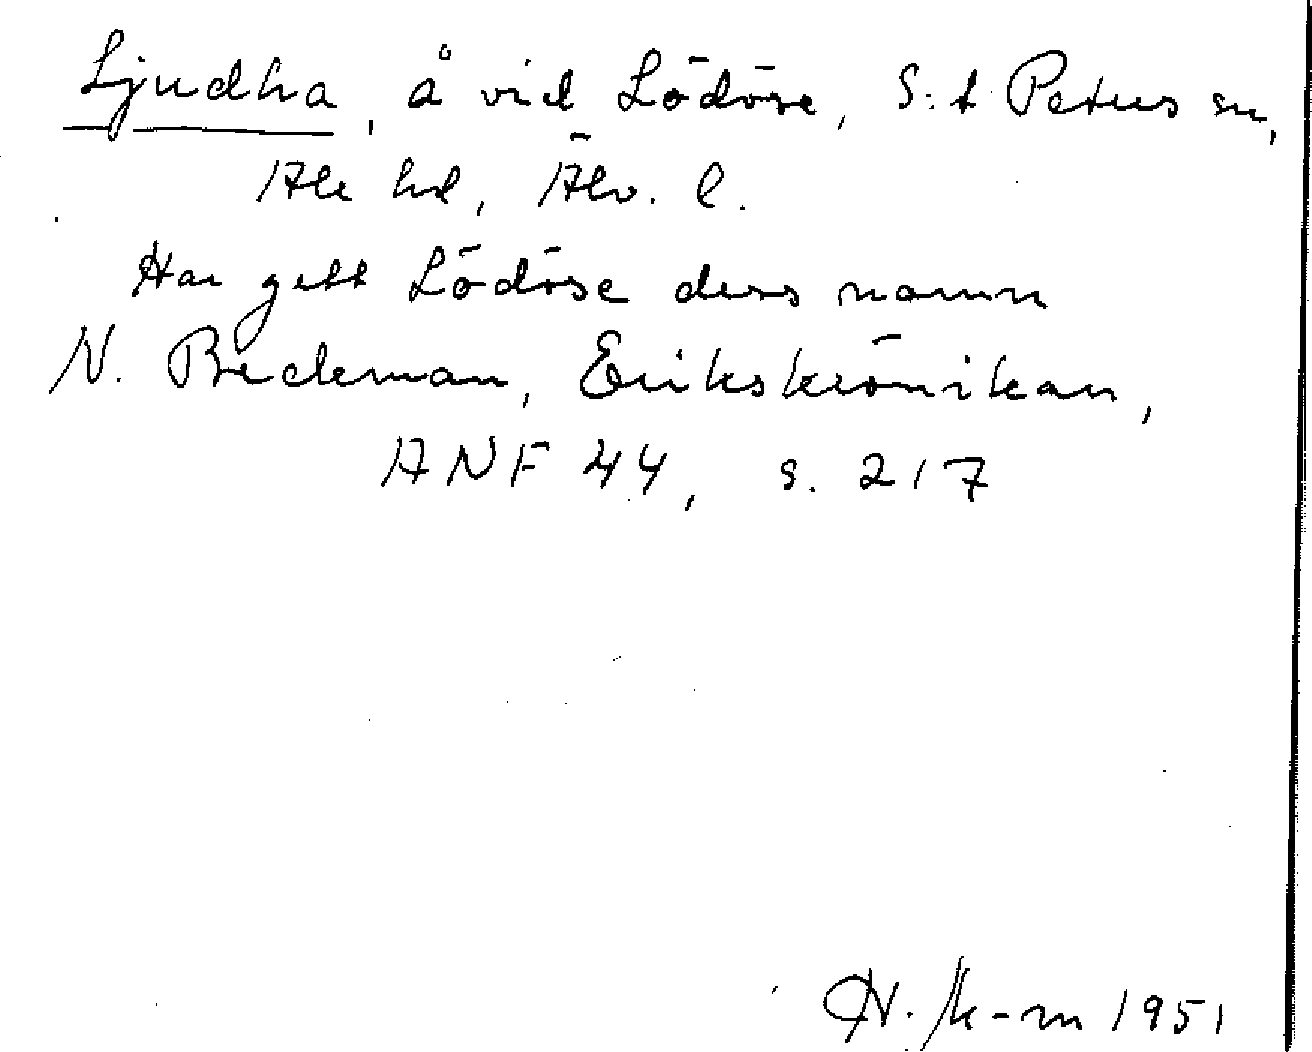 Ljudha, å vid Lödöse, S:t Petus sn,
Ale hd, Älv. l.
Har gett Lödöse dess namn
N. Beckman, Erikskrönikan,
ANF 44, s. 217
1951